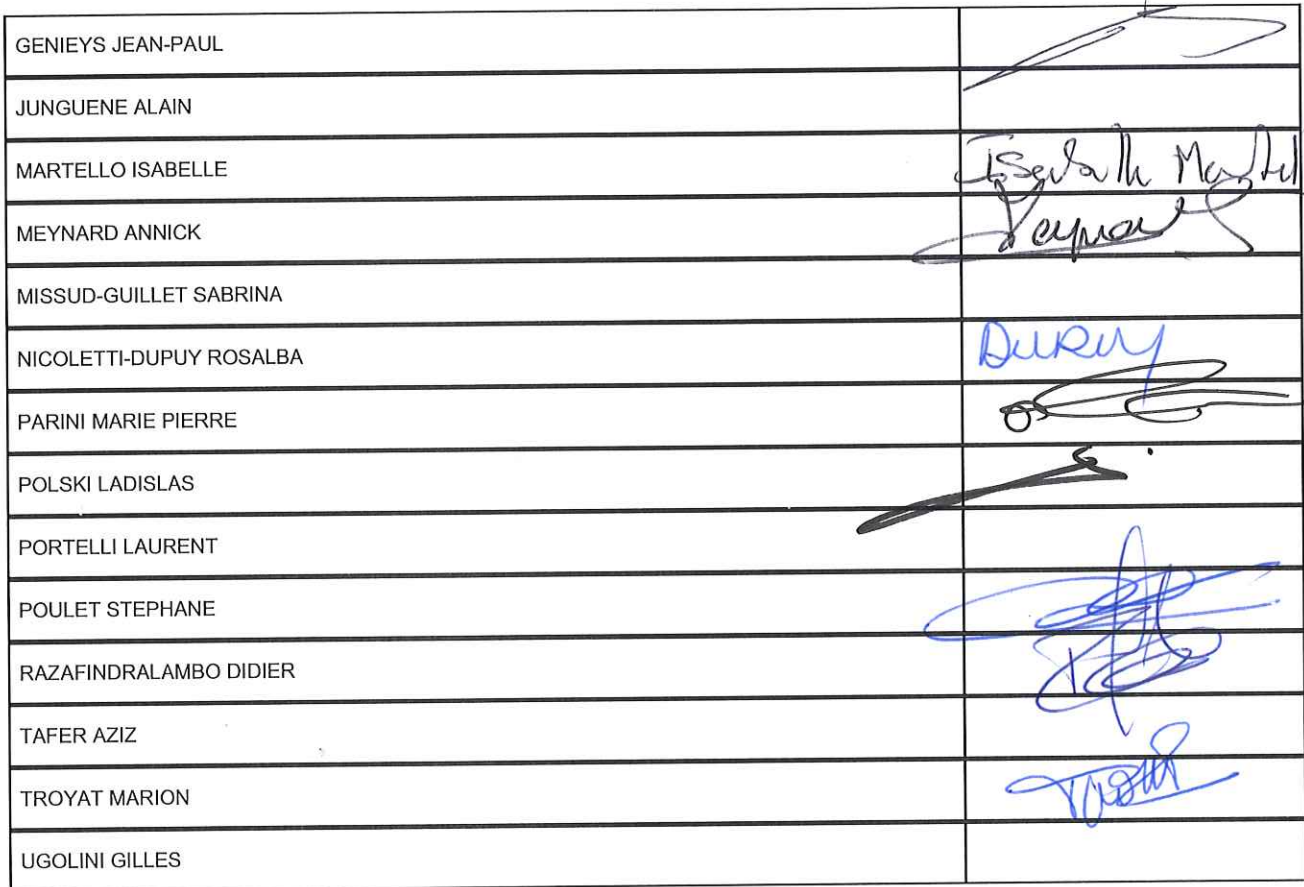 GENIEYS JEAN-PAUL
JUNGUENE ALAIN
MARTELLO ISABELLE
MEYNARD ANNICK
MISSUD-GUILLET SABRINA
NICOLETTI-DUPUY ROSALBA
PARINI MARIE PIERRE
POLSKI LADISLAS
PORTELLI LAURENT
POULET STEPHANE
RAZAFINDRALAMBO DIDIER
TAFER AZIZ
TROYAT MARION
UGOLINI GILLES